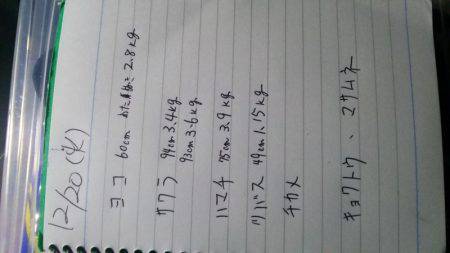 12/20 (水)
ヨコ 60cm わた抜きで 2.8kg
サワラ 94cm 3.4kg
93cm 3.6kg
ハマチ 75cm 3.9kg
ツバス 49cm 1.15kg
チカメ
キョクトウ、マサムネ